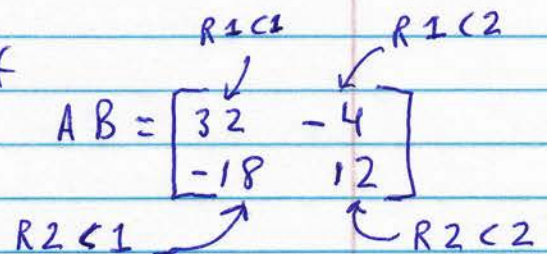 R1C1 R1C2
AB = [32 -4
-18 12]
R2C1 R2C2